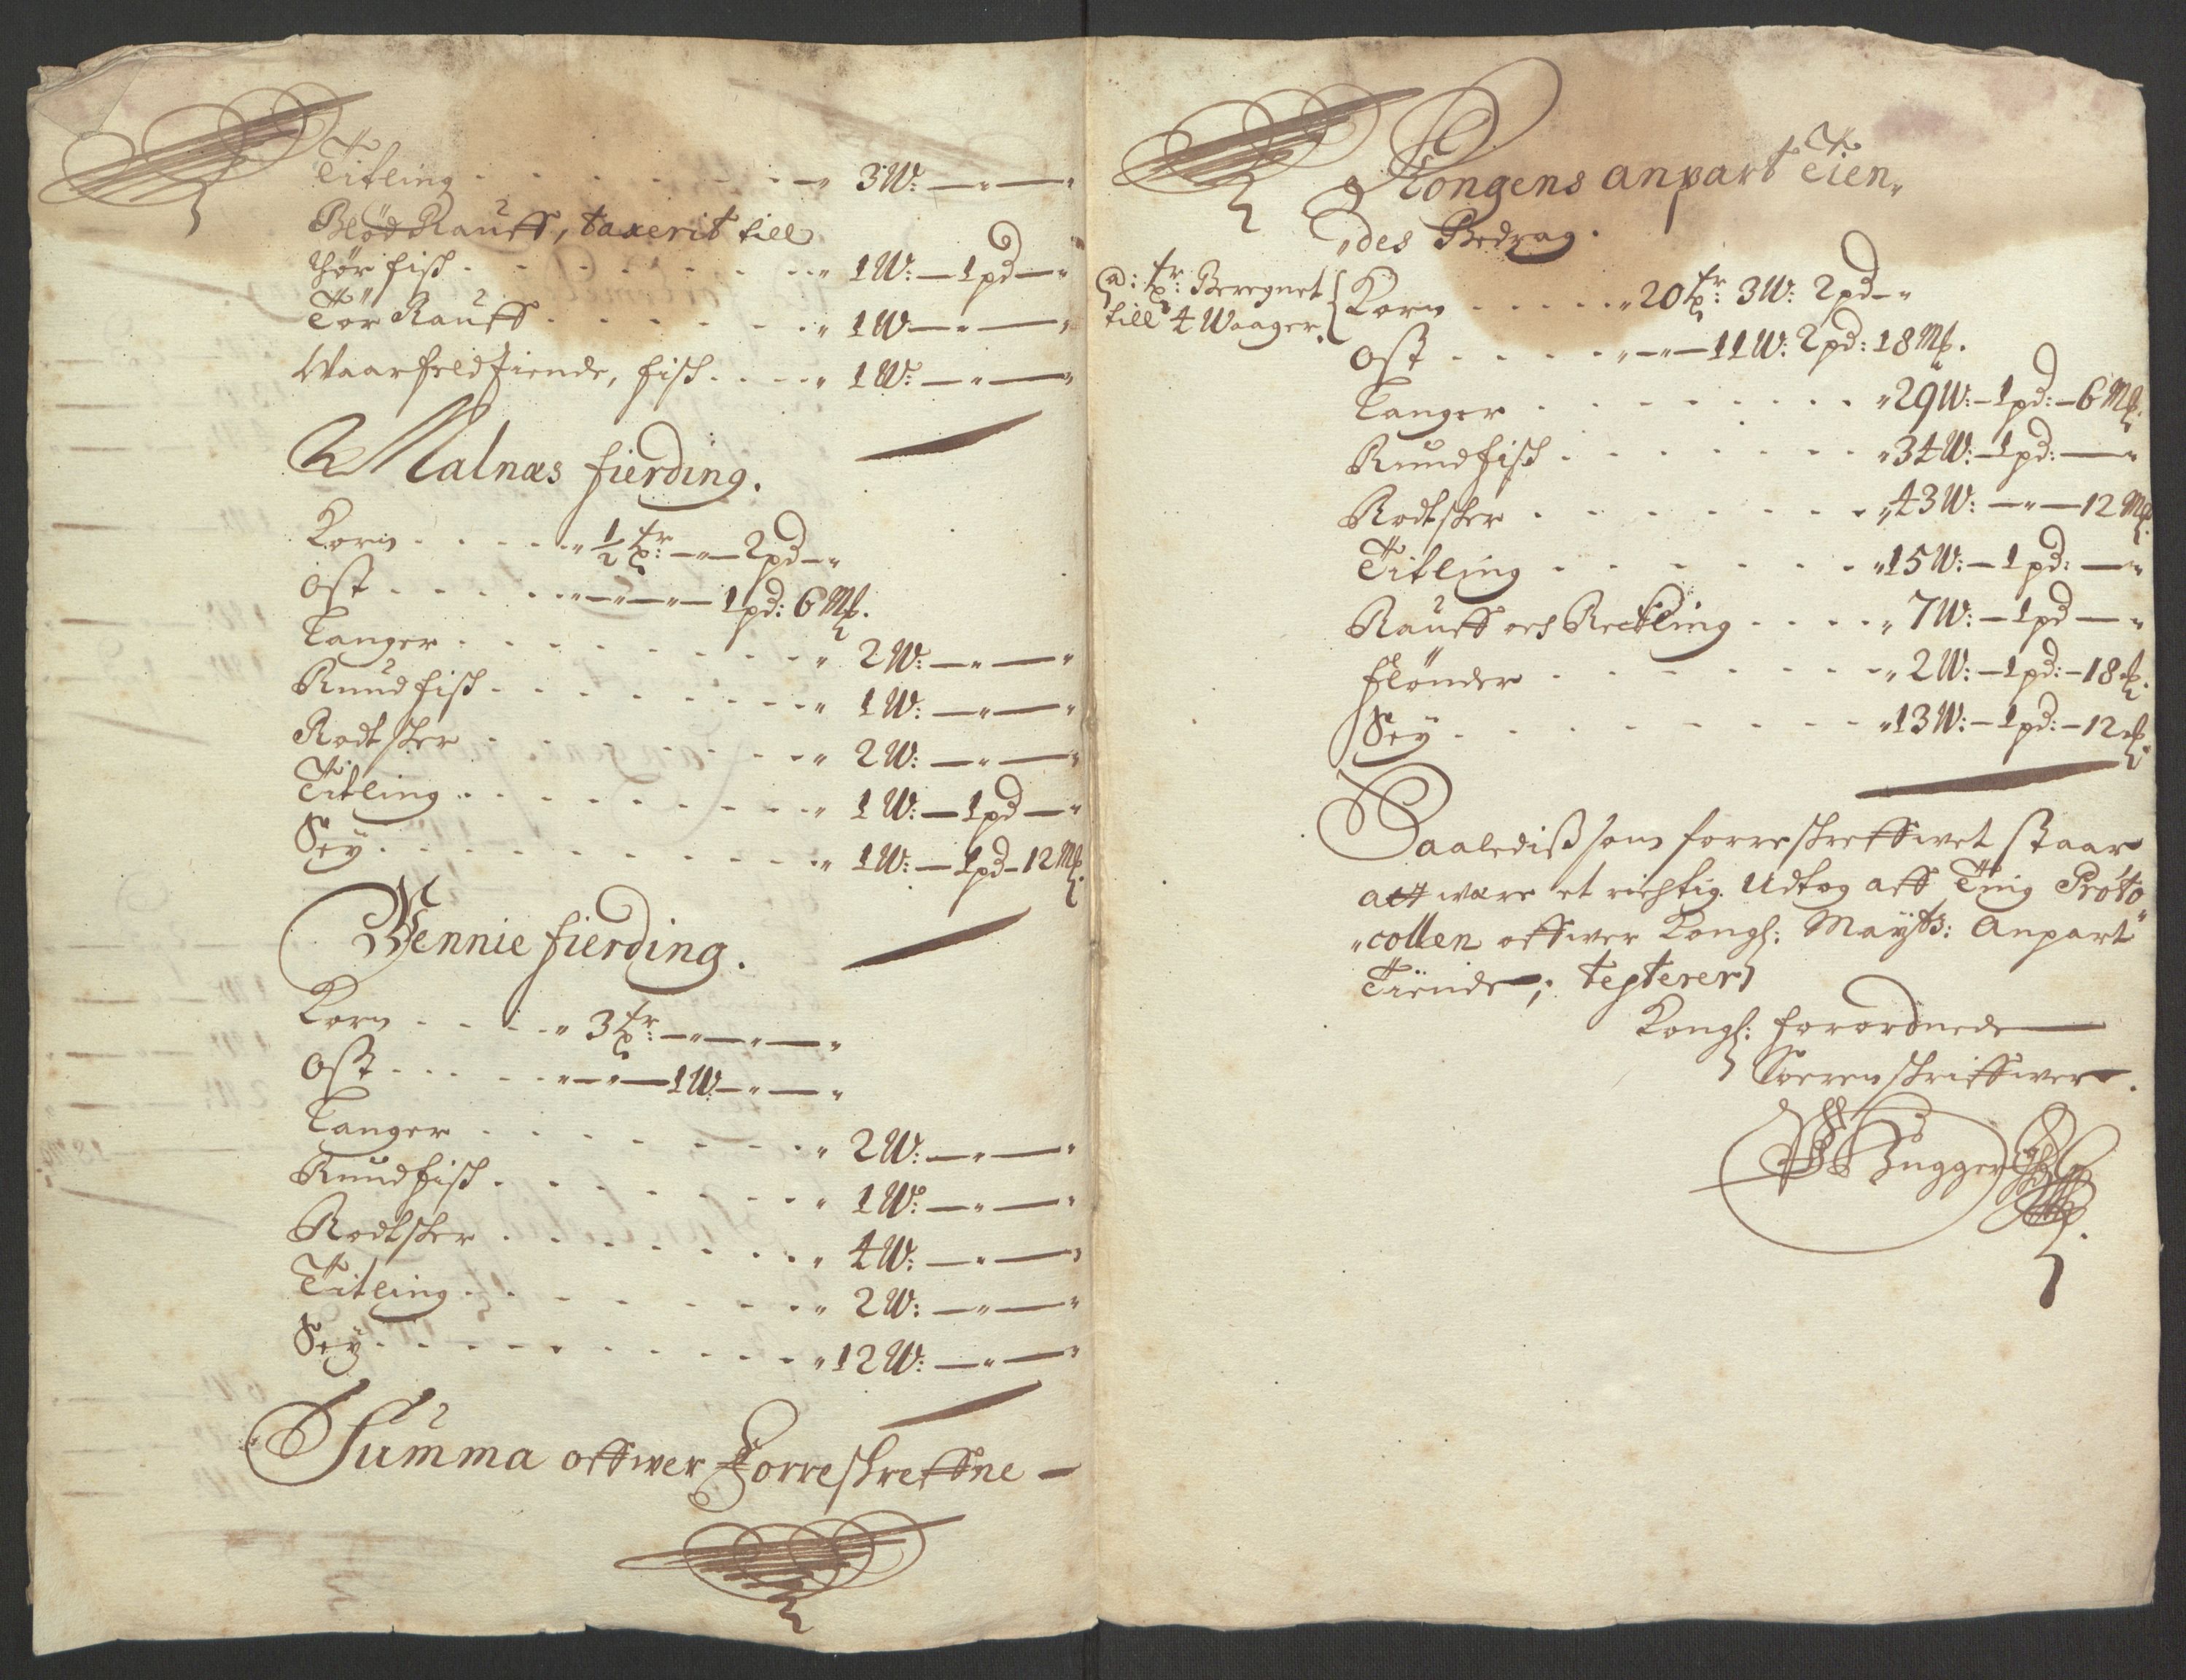 Titling - - - - - - 3 W: — " — "
Blöd Rauff, taxerit till
thör fisk - - - - - - 1 W: — 1 pd — "
Tör Rauff - - - - - - 1 W — " — "
Waarfeld tiende, fisk - - - - 1 W: — " — "
Malnæs fierding.
Korn - - - - - " ½ tr: — " — 2 pd — "
Ost - - - - - " — " — " — 1 pd: 6 Mk.
Langer - - - - - - 2 W: — " — "
Rundfisk - - - - - - 1 W: — " — "
Rodtskier - - - - - - 2 W: — " — "
Titling - - - - - - 1 W: — 1 pd — "
Sey - - - - - - 1 W: — 1 pd — 12 Mk.
Vennie fierding.
Korn - - - - " 3 tr: — " — " — "
Ost - - - - " — " — 1 W — " — "
Langer - - - - - - 2 W: — " — "
Rundfisk - - - - - - 1 W: — " — "
Rodtsker - - - - - - 4 W: — " — "
Titling - - - - - - 2 W: — " — "
Sey - - - - - - " 12 W: — " — "
Summa offwer Forreskreffne —
Kongens anpart Tien„
„des Bedrag.
a: tr: Beregnet
till 4 Waager.
Korn - - - - - " 20 tr: 3 W: 2 pd — "
Ost - - - - " — " — 11 W: 2 pd: 18 Mk.
Langer - - - - - - " 29 W: — 1 pd: — 6 Mk.
Rundfisk - - - - - - " 34 W: — 1 pd: — "
Rodtsker - - - - - - " 43 W: — " — 12 Mk.
Titling - - - - - - " 15 W: — 1 pd: — "
Rauff och Reckling - - - - " 7 W: — 1 pd — "
flönder - - - - - - " 2 W: — 1 pd: — 18 Mk.
Sey - - - - - - " 13 W: — 1 pd: — 12 Mk.
Saalediss som forreskreffwet staar
att være et richtig Udtog aff Ting Proto
„collen offwer Kongl: Mayts: Anpart
Tiende; testerer
Kongl: forordnede
Sorenskriffwer.
Bugge